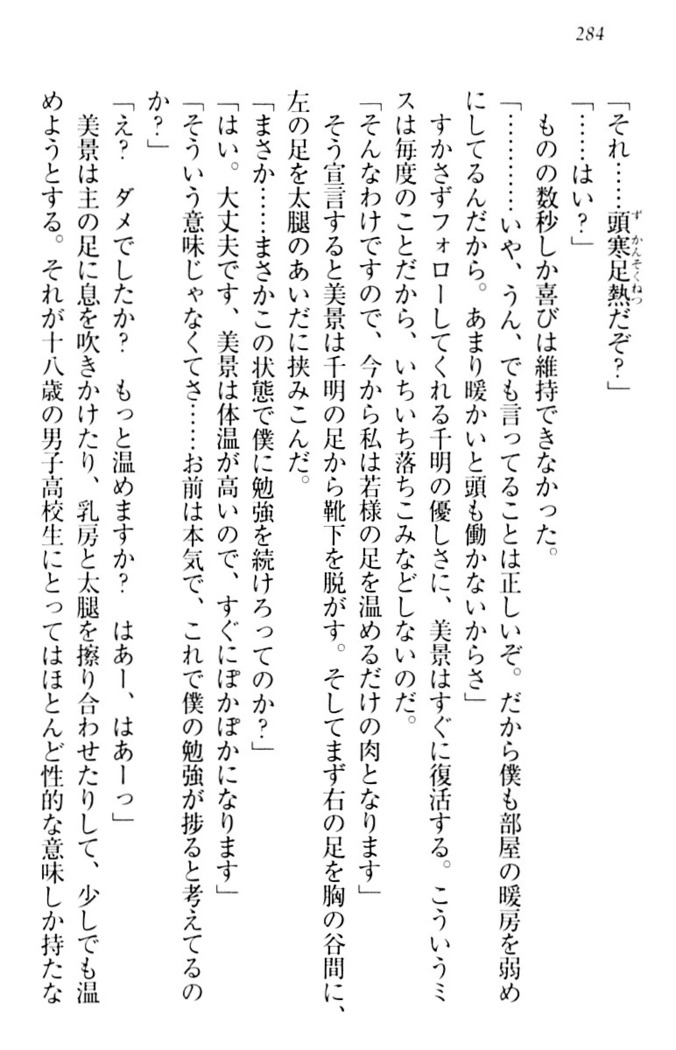 284
「それ……頭寒足熱だぞ？」
ず かんそくねつ
「……はい？」
ものの数秒しか喜びは維持できなかった。
「…………いや、うん、でも言ってることは正しいぞ。だから僕も部屋の暖房を弱め
にしてるんだから。あまり暖かいと頭も働かないからさ」
すかさずフォローしてくれる千明の優しさに、美景はすぐに復活する。こういうミ
スは毎度のことだから、いちいち落ちこみなどしないのだ。
「そんなわけですので、今から私は若様の足を温めるだけの肉となります」
そう宣言すると美景は千明の足から靴下を脱がす。そしてまず右の足を胸の谷間に、
左の足を太腿のあいだに挟みこんだ。
「まさか……まさかこの状態で僕に勉強を続けろってのか？」
「はい。大丈夫です、美景は体温が高いので、すぐにぽかぽかになります」
「そういう意味じゃなくてさ……お前は本気で、これで僕の勉強が捗ると考えてるの
か？」
「え？　ダメでしたか？　もっと温めますか？　はあー、はあーっ」
美景は主の足に息を吹きかけたり、乳房と太腿を擦り合わせたりして、少しでも温
めようとする。それが十八歳の男子高校生にとってはほとんど性的な意味しか持たな